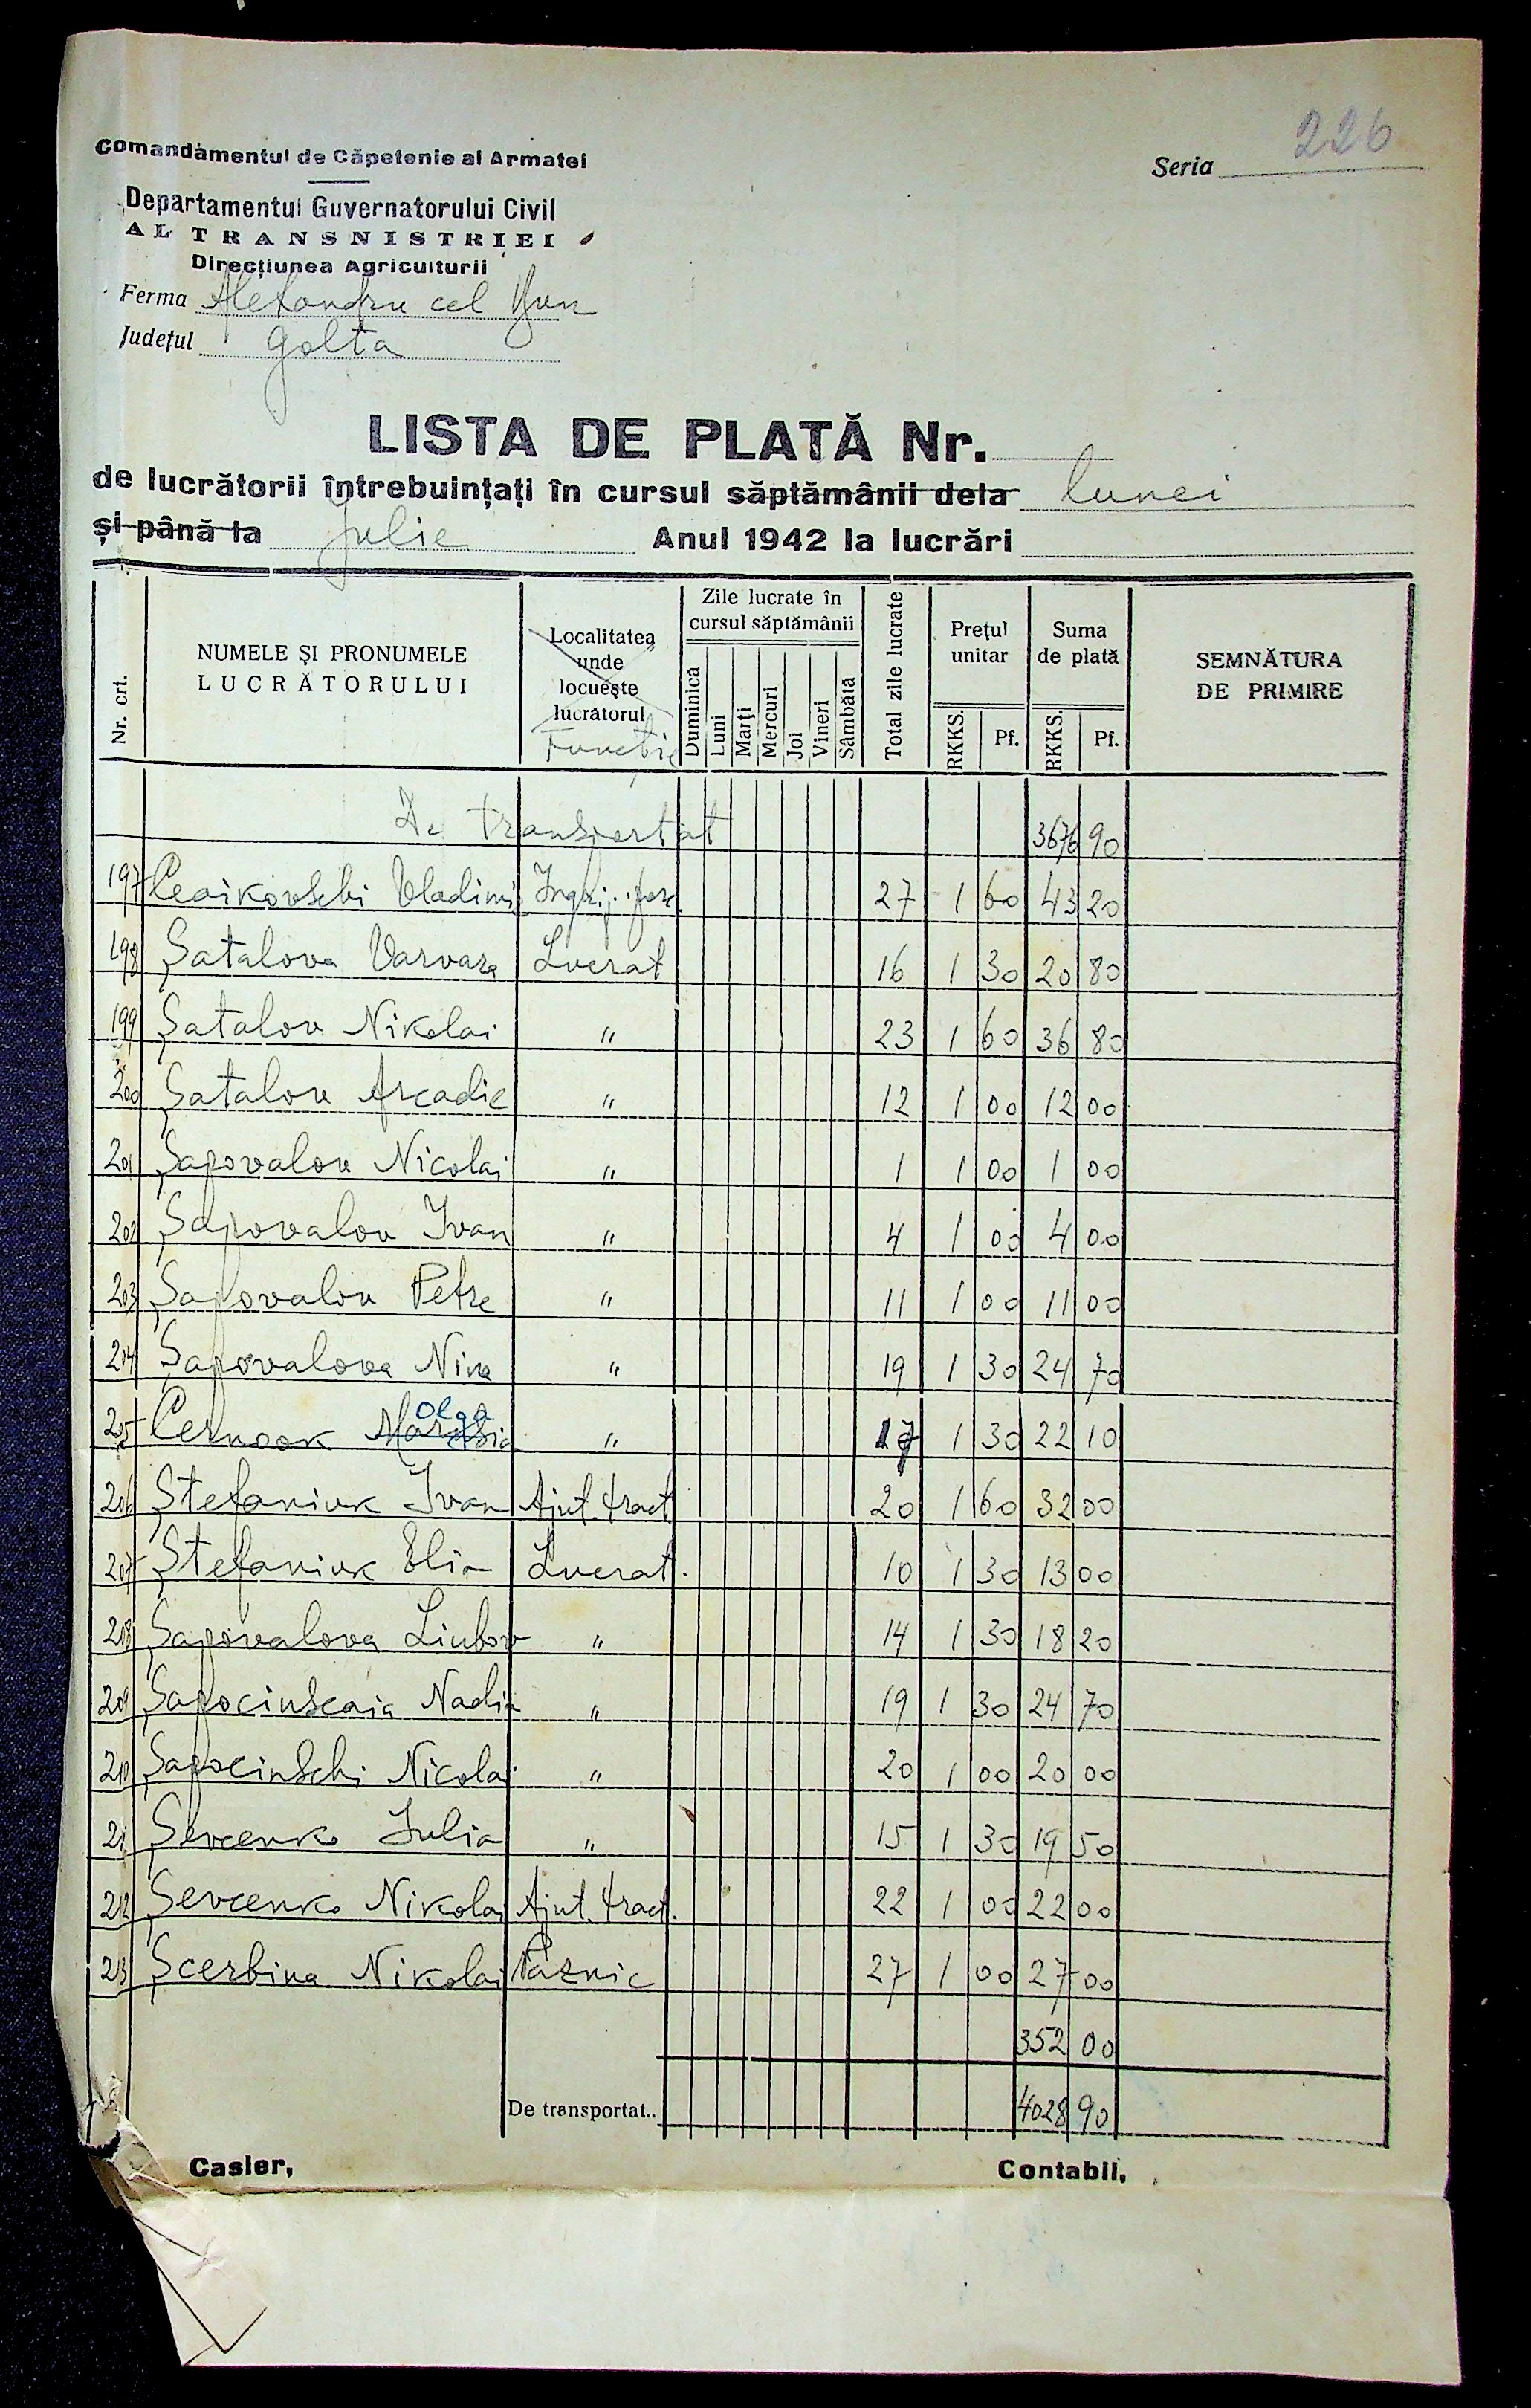 226
Comandamentul de Căpetenie al Armatei
Seria
Departamentul Guvernatorului Civil
AL TRANSNISTRIEI
Direcțiunea Agriculturii
Ferma Alexandru cel Bun
Județul Golta
LISTA DE PLATĂ Nr.
de lucrătorii întrebuințați în cursul săptămânii dela lunei
și până la Julie Anul 1942 la lucrări
Nr. crt.
NUMELE ȘI PRONUMELE
LUCRĂTORULUI
Localitatea
unde
locuește
lucrătorul
Functie
Zile lucrate în
cursul săptămânii
Duminică Luni Marți Mercuri Joi Vineri Sâmbătă
Total zile lucrate
Prețul
unitar
RKKS. Pf.
Suma
de plată
RKKS. Pf.
SEMNĂTURA
DE PRIMIRE
De transportat 3676 90
197 Ceaikovschi Vladimi Ingrij. porc. 27 1 60 43 20
198 Șatalova Varvara Lucrat 16 1 30 20 80
199 Șatalov Nikolai " 23 1 60 36 80
200 Șatalov Arcadie " 12 1 00 12 00
201 Șapovalov Nicolai " 1 1 00 1 00
202 Șapovalov Ivan " 4 1 00 4 00
203 Șapovalov Petre " 11 1 00 11 00
204 Șapovalova Nina " 19 1 30 24 70
Olga
205 Cernook " 17 1 30 22 10
206 Ștefaniuk Ivan Ajut. tract 20 1 60 32 00
207 Ștefaniuk Elia Lucrat. 10 1 30 13 00
208 Șapovalova Liubov " 14 1 30 18 20
209 Șapocinscaia Nadia " 19 1 30 24 70
210 Șapocinschi Nicolai " 20 1 00 20 00
211 Șevcenko Iulia " 15 1 30 19 50
212 Șevcenko Nikolai Ajut. tract. 22 1 00 22 00
213 Șcerbina Nikolai Paznic 27 1 00 27 00
352 00
De transportat.. 4028 90
Casier,
Contabil,